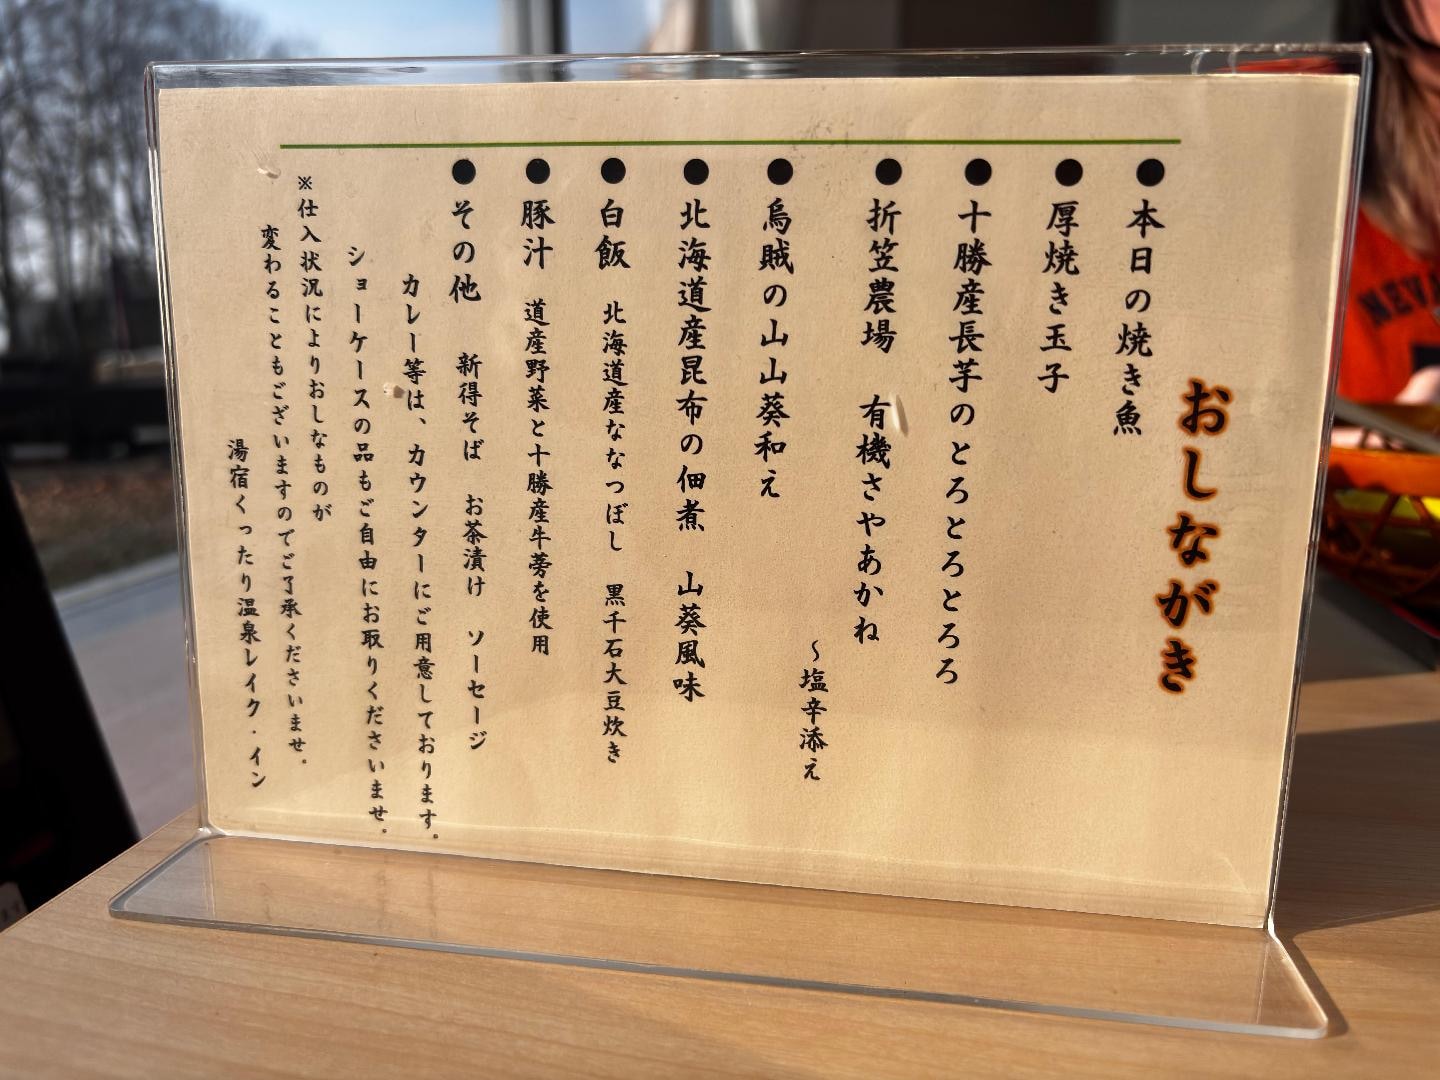 おしながき
●本日の焼き魚
●厚焼き玉子
●十勝産長芋のとろとろとろろ
●折笠農場 有機さやあかね
~塩辛添え
●烏賊の山山葵和え
●北海道産昆布の佃煮 山葵風味
●白飯 北海道産ななつぼし 黒千石大豆炊き
●豚汁 道産野菜と十勝産牛蒡を使用
●その他 新得そば お茶漬け ソーセージ
カレー等は、カウンターにご用意しております。
ショーケースの品もご自由にお取りくださいませ。
※仕入状況によりおしなものが
変わることもございますのでご了承くださいませ。
湯宿くったり温泉レイク・イン
NEV